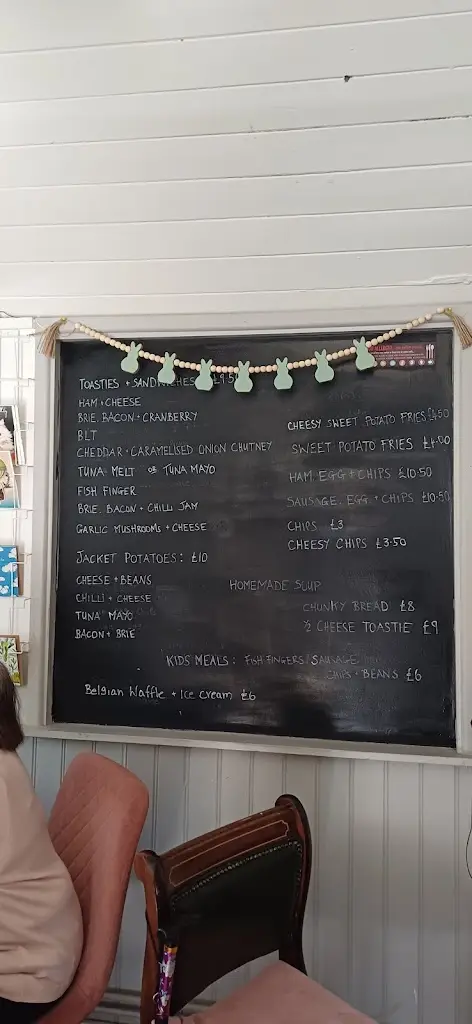 TOASTIES + SANDWICHES £9.50
HAM + CHEESE
BRIE, BACON + CRANBERRY
BLT
CHEDDAR + CARAMELISED ONION CHUTNEY
TUNA MELT OR TUNA MAYO
FISH FINGER
BRIE, BACON + CHILLI JAM
GARLIC MUSHROOMS + CHEESE
JACKET POTATOES: £10
CHEESE + BEANS
CHILLI + CHEESE
TUNA MAYO
BACON + BRIE
CHEESY SWEET POTATO FRIES £4.50
SWEET POTATO FRIES £4.00
HAM EGG + CHIPS £10.50
SAUSAGE, EGG + CHIPS £10.50
CHIPS £3
CHEESY CHIPS £3.50
HOMEMADE SOUP
CHUNKY BREAD £8
½ CHEESE TOASTIE £9
KIDS MEALS: FISH FINGERS/SAUSAGE
CHIPS + BEANS £6
Belgian Waffle + Ice Cream £6